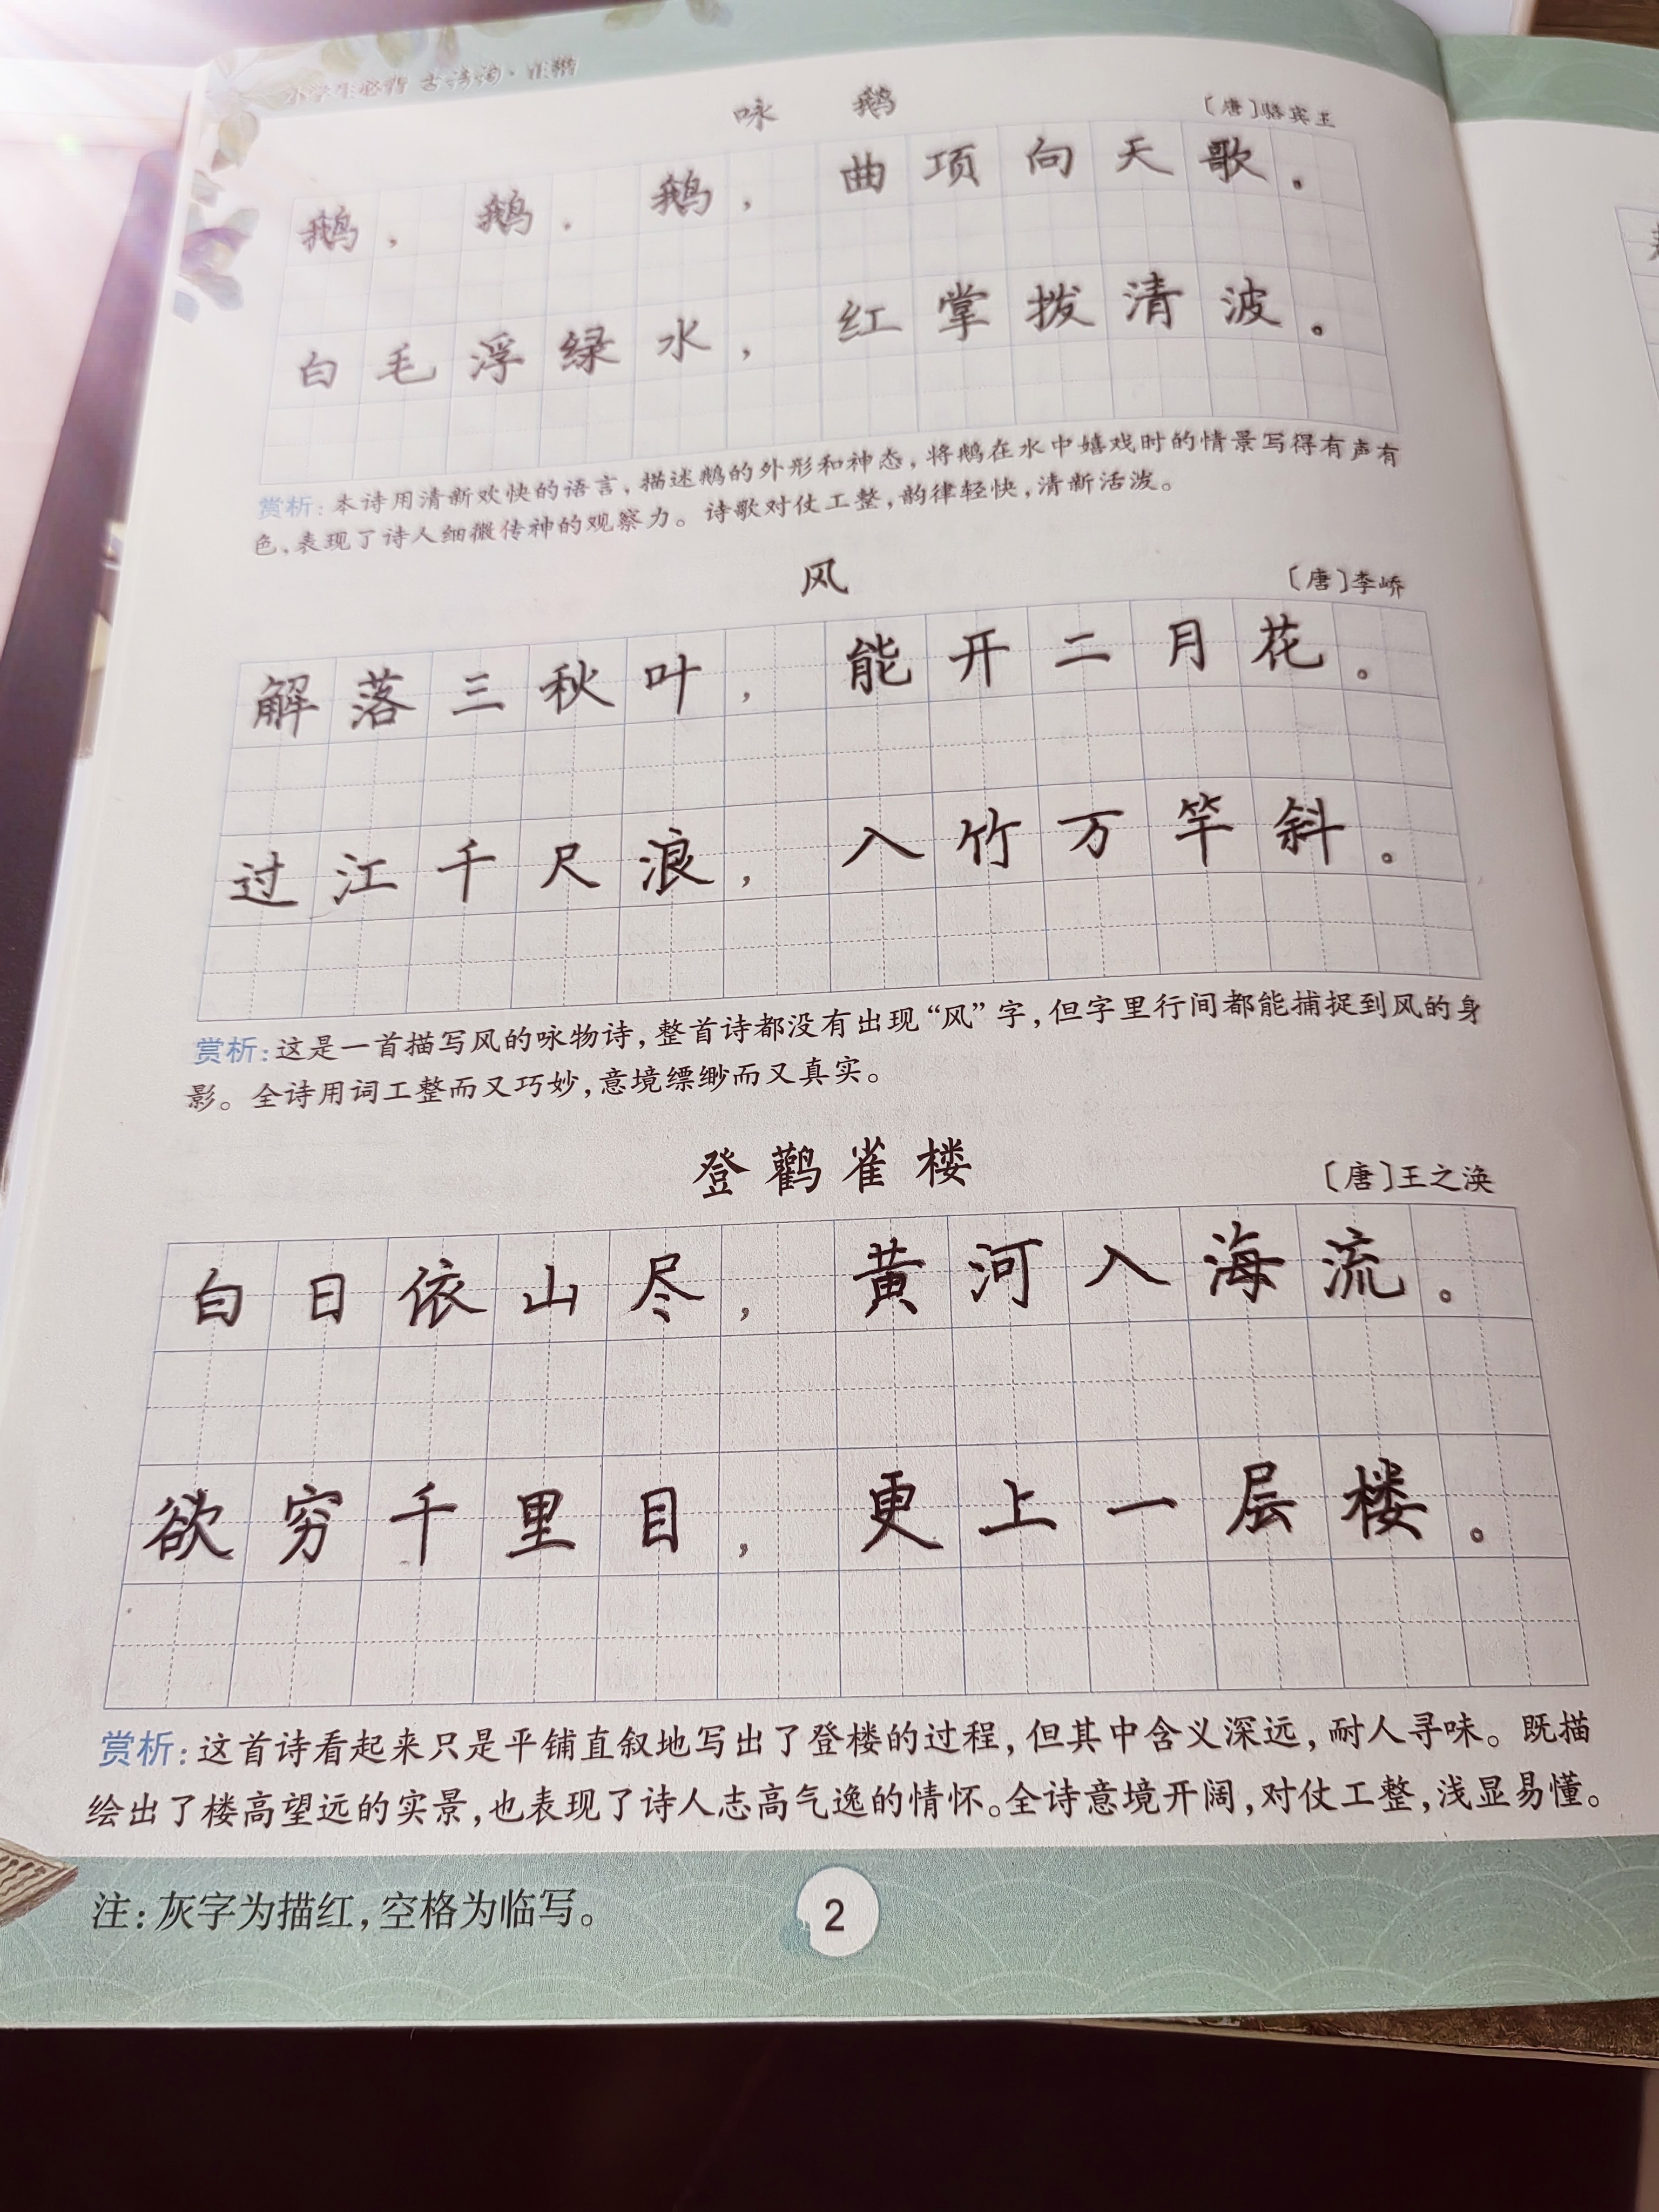 小学生必背 古诗词·正楷
咏 鹅
〔唐〕骆宾王
鹅，鹅，鹅，曲项向天歌。
白毛浮绿水，红掌拨清波。
赏析：本诗用清新欢快的语言，描述鹅的外形和神态，将鹅在水中嬉戏时的情景写得有声有
色，表现了诗人细微传神的观察力。诗歌对仗工整，韵律轻快，清新活泼。
风
〔唐〕李峤
解落三秋叶，能开二月花。
过江千尺浪，入竹万竿斜。
赏析：这是一首描写风的咏物诗，整首诗都没有出现“风”字，但字里行间都能捕捉到风的身
影。全诗用词工整而又巧妙，意境缥缈而又真实。
登鹳雀楼
〔唐〕王之涣
白日依山尽，黄河入海流。
欲穷千里目，更上一层楼。
赏析：这首诗看起来只是平铺直叙地写出了登楼的过程，但其中含义深远，耐人寻味。既描
绘出了楼高望远的实景，也表现了诗人志高气逸的情怀。全诗意境开阔，对仗工整，浅显易懂。
注：灰字为描红，空格为临写。
2